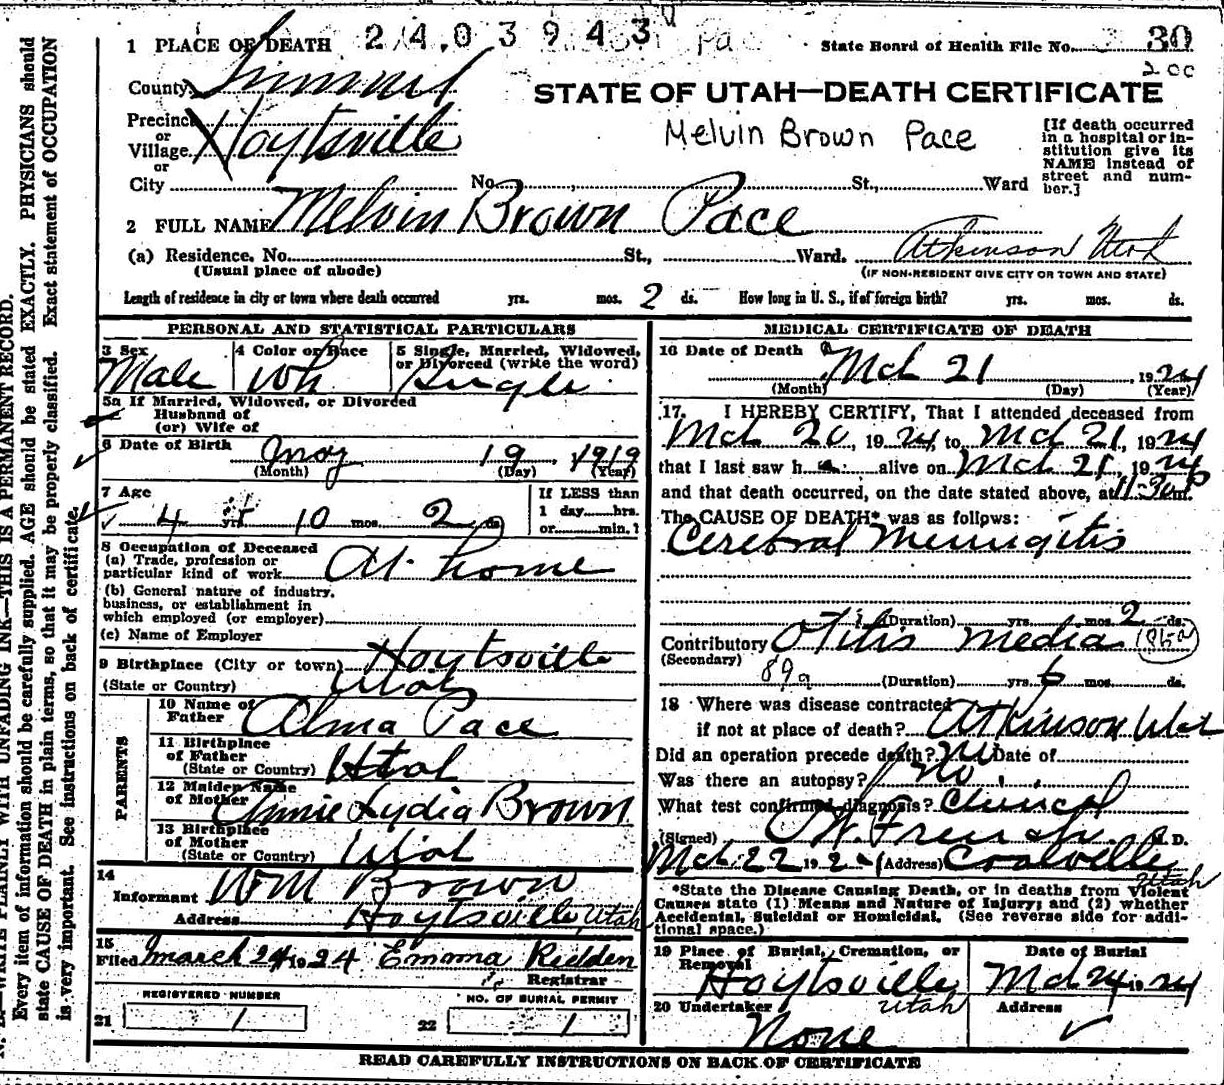 2403943
1 PLACE OF DEATH
State Board of Health File No. 30
200
County Summit
STATE OF UTAH—DEATH CERTIFICATE
Precinct
or
Village Hoytsville
or
City No. St., Ward
Melvin Brown Pace
[If death occurred in a hospital or in-
stitution give its
NAME instead of
street and num-
ber.]
2 FULL NAME Melvin Brown Pace
(a) Residence. No. St., Ward. Atkinson Utah
(Usual place of abode)
(IF NON-RESIDENT GIVE CITY OR TOWN AND STATE)
Length of residence in city or town where death occurred yrs. mos. 2 ds. How long in U. S., if of foreign birth? yrs. mos. ds.
PERSONAL AND STATISTICAL PARTICULARS
3 Sex 4 Color or Race 5 Single, Married, Widowed,
or Divorced (write the word)
Male Wh Single
5a If Married, Widowed, or Divorced
Husband of
(or) Wife of
6 Date of Birth May 19 1919
(Month) (Day) (Year)
7 Age
If LESS than
4 yrs 10 mos. 2 ds
1 day hrs.
or min.?
8 Occupation of Deceased
(a) Trade, profession or
particular kind of work At home
(b) General nature of industry,
business, or establishment in
which employed (or employer)
(c) Name of Employer
9 Birthplace (City or town) Hoytsville
(State or Country) Utah
PARENTS
10 Name of
Father Alma Pace
11 Birthplace
of Father
(State or Country) Utah
12 Maiden Name
of Mother Annie Lydia Brown
13 Birthplace
of Mother
(State or Country) Utah
14
Informant Wm Brown
Address Hoytsville, Utah
15
Filed March 24 1924 Emma Redden
Registrar
REGISTERED NUMBER NO. OF BURIAL PERMIT
21 1 22 1
MEDICAL CERTIFICATE OF DEATH
16 Date of Death Mch 21 1924
(Month) (Day) (Year)
17. I HEREBY CERTIFY, That I attended deceased from
Mch 20, 1924, to Mch 21, 1924
that I last saw h alive on Mch 21, 1924
and that death occurred, on the date stated above, at 11-30 m.
The CAUSE OF DEATH* was as follows:
Cerebral Meningitis
(Duration) yrs. mos. 2 ds.
Contributory Otitis media
(Secondary)
89a (Duration) yrs. 6 mos. ds.
18 Where was disease contracted
if not at place of death? Atkinson Utah
Did an operation precede death? no Date of
Was there an autopsy? no
What test confirmed diagnosis? Clinical
(Signed) M. D.
Mch 22 192 (Address) Coalville
Utah
*State the Disease Causing Death, or in deaths from Violent
Causes state (1) Means and Nature of Injury; and (2) whether
Accidental, Suicidal or Homicidal. (See reverse side for addi-
tional space.)
19 Place of Burial, Cremation, or
Removal Date of Burial
Hoytsville Mch 24 1924
Utah
20 Undertaker Address
None
READ CAREFULLY INSTRUCTIONS ON BACK OF CERTIFICATE
N. B.—WRITE PLAINLY WITH UNFADING INK—THIS IS A PERMANENT RECORD.
Every item of information should be carefully supplied. AGE should be stated EXACTLY. PHYSICIANS should
state CAUSE OF DEATH in plain terms, so that it may be properly classified. Exact statement of OCCUPATION
is very important. See instructions on back of certificate.